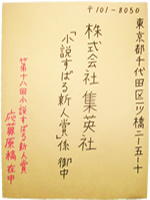 〒101-8050
東京都千代田区一ツ橋二-五-十
株式会社 集英社
「小説すばる新人賞」係 御中
第十八回小説すばる新人賞
応募原稿在中